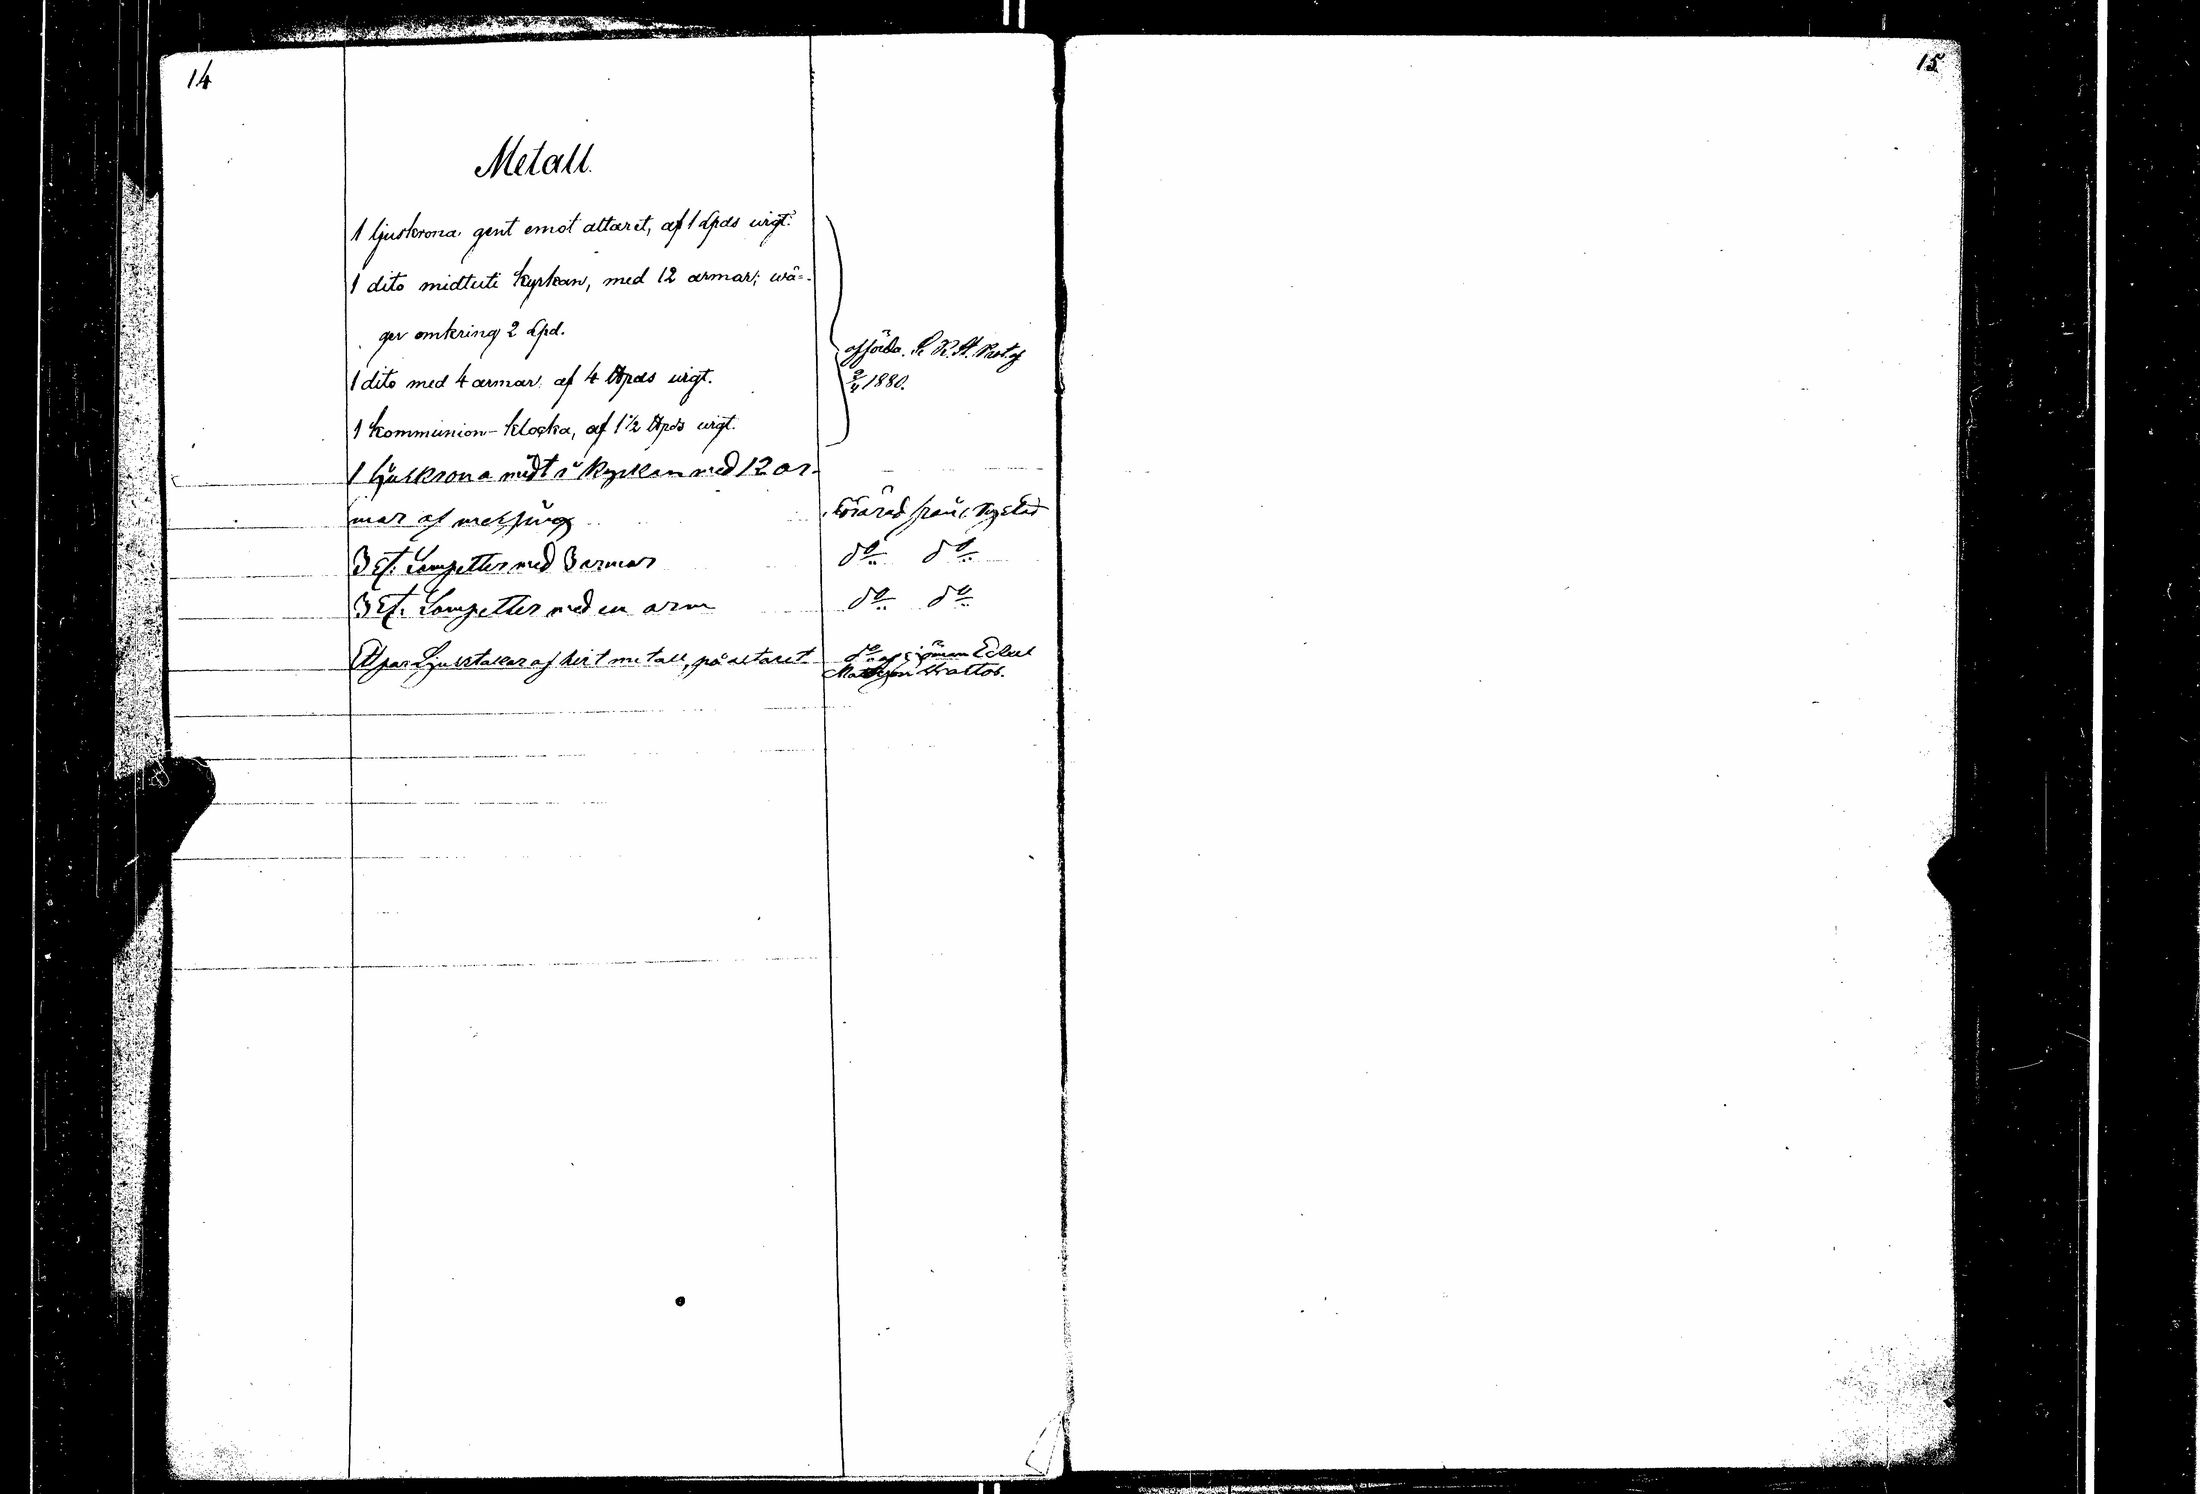 14
15
Metall.
1 ljuskrona gent emot altaret, af 1 Lpds wigt.
1 dito midtuti kyrkan, med 12 armar; wä=
ger omkring 2 Lpd.
1 dito med 4 armar af 4 ℔pds wigt.
1 kommunion-klocka, af 1 1/2 ℔pds wigt.
afförda. Se K. St. Prot. af
1880.
1 Ljuskrona midt i kyrkan med 12 ar-
mar af messing
förärad från Nystad
3 st. Lampetter med 3 armar
do do
3 st. Lampetter med en arm
do do
Ett par Ljusstakar af hvit metall, på altaret
do af sjöman